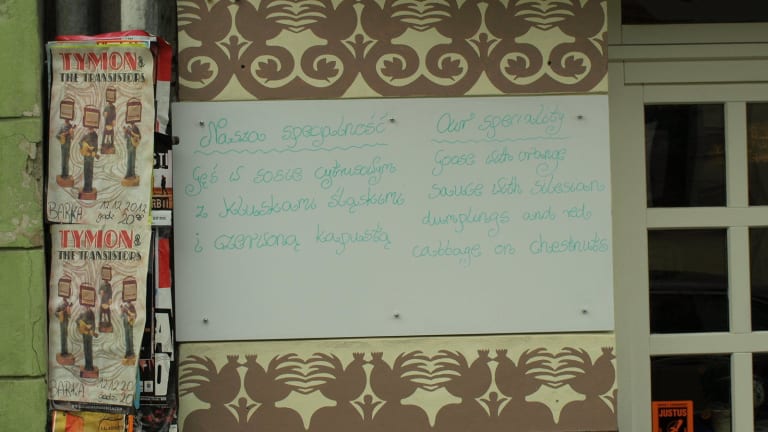 TYMON &
THE TRANSISTORS
BARKA 12.12.2012
godz. 20
TYMON &
THE TRANSISTORS
BARKA 12.12.20
godz. 20
Nasza specjalność
Gęś w sosie cytrusowym
z kluskami śląskimi
i czerwoną kapustą
Our speciality
Goose with orange
sauce with silesian
dumplings and red
cabbage on chestnuts
JUSTUS